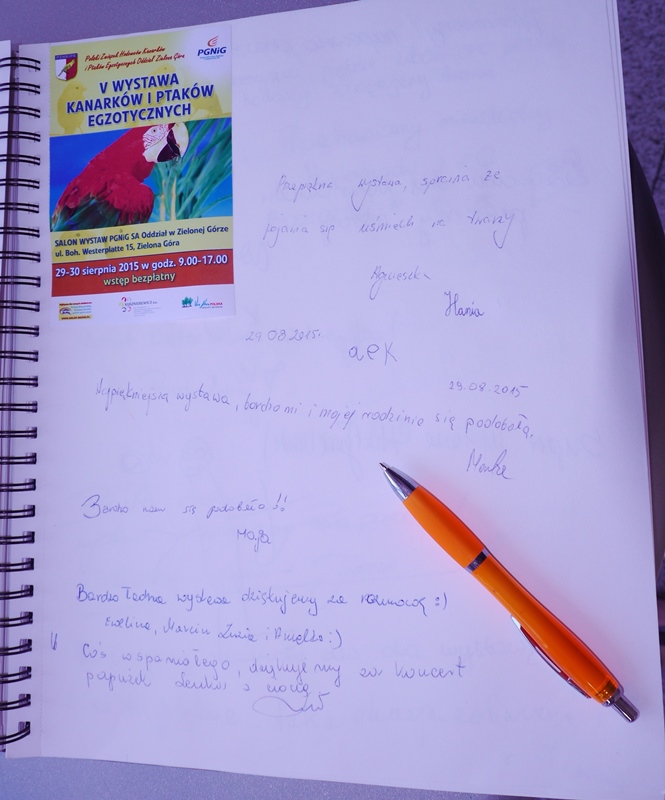 Polski Związek Hodowców Kanarków
i Ptaków Egzotycznych Oddział Zielona Góra
PGNiG
V WYSTAWA
KANARKÓW I PTAKÓW
EGZOTYCZNYCH
SALON WYSTAW PGNiG SA Oddział w Zielonej Górze
ul. Boh. Westerplatte 15, Zielona Góra
29-30 sierpnia 2015 w godz. 9.00-17.00
wstęp bezpłatny
Przepiękna wystawa, sprawia że
pojawia się uśmiech na twarzy
Agnieszka
Hania
29.08.2015.
aek
29.08.2015
Najpiękniejsza wystawa, bardzo mi i mojej rodzinie się podobała.
Bardzo nam się podobało!!
Maja
Bardzo ładna wystawa dziękujemy za rozmowę :)
Ewelina, Marcin Zuzia i :)
Coś wspaniałego, dziękujemy za koncert
papużek